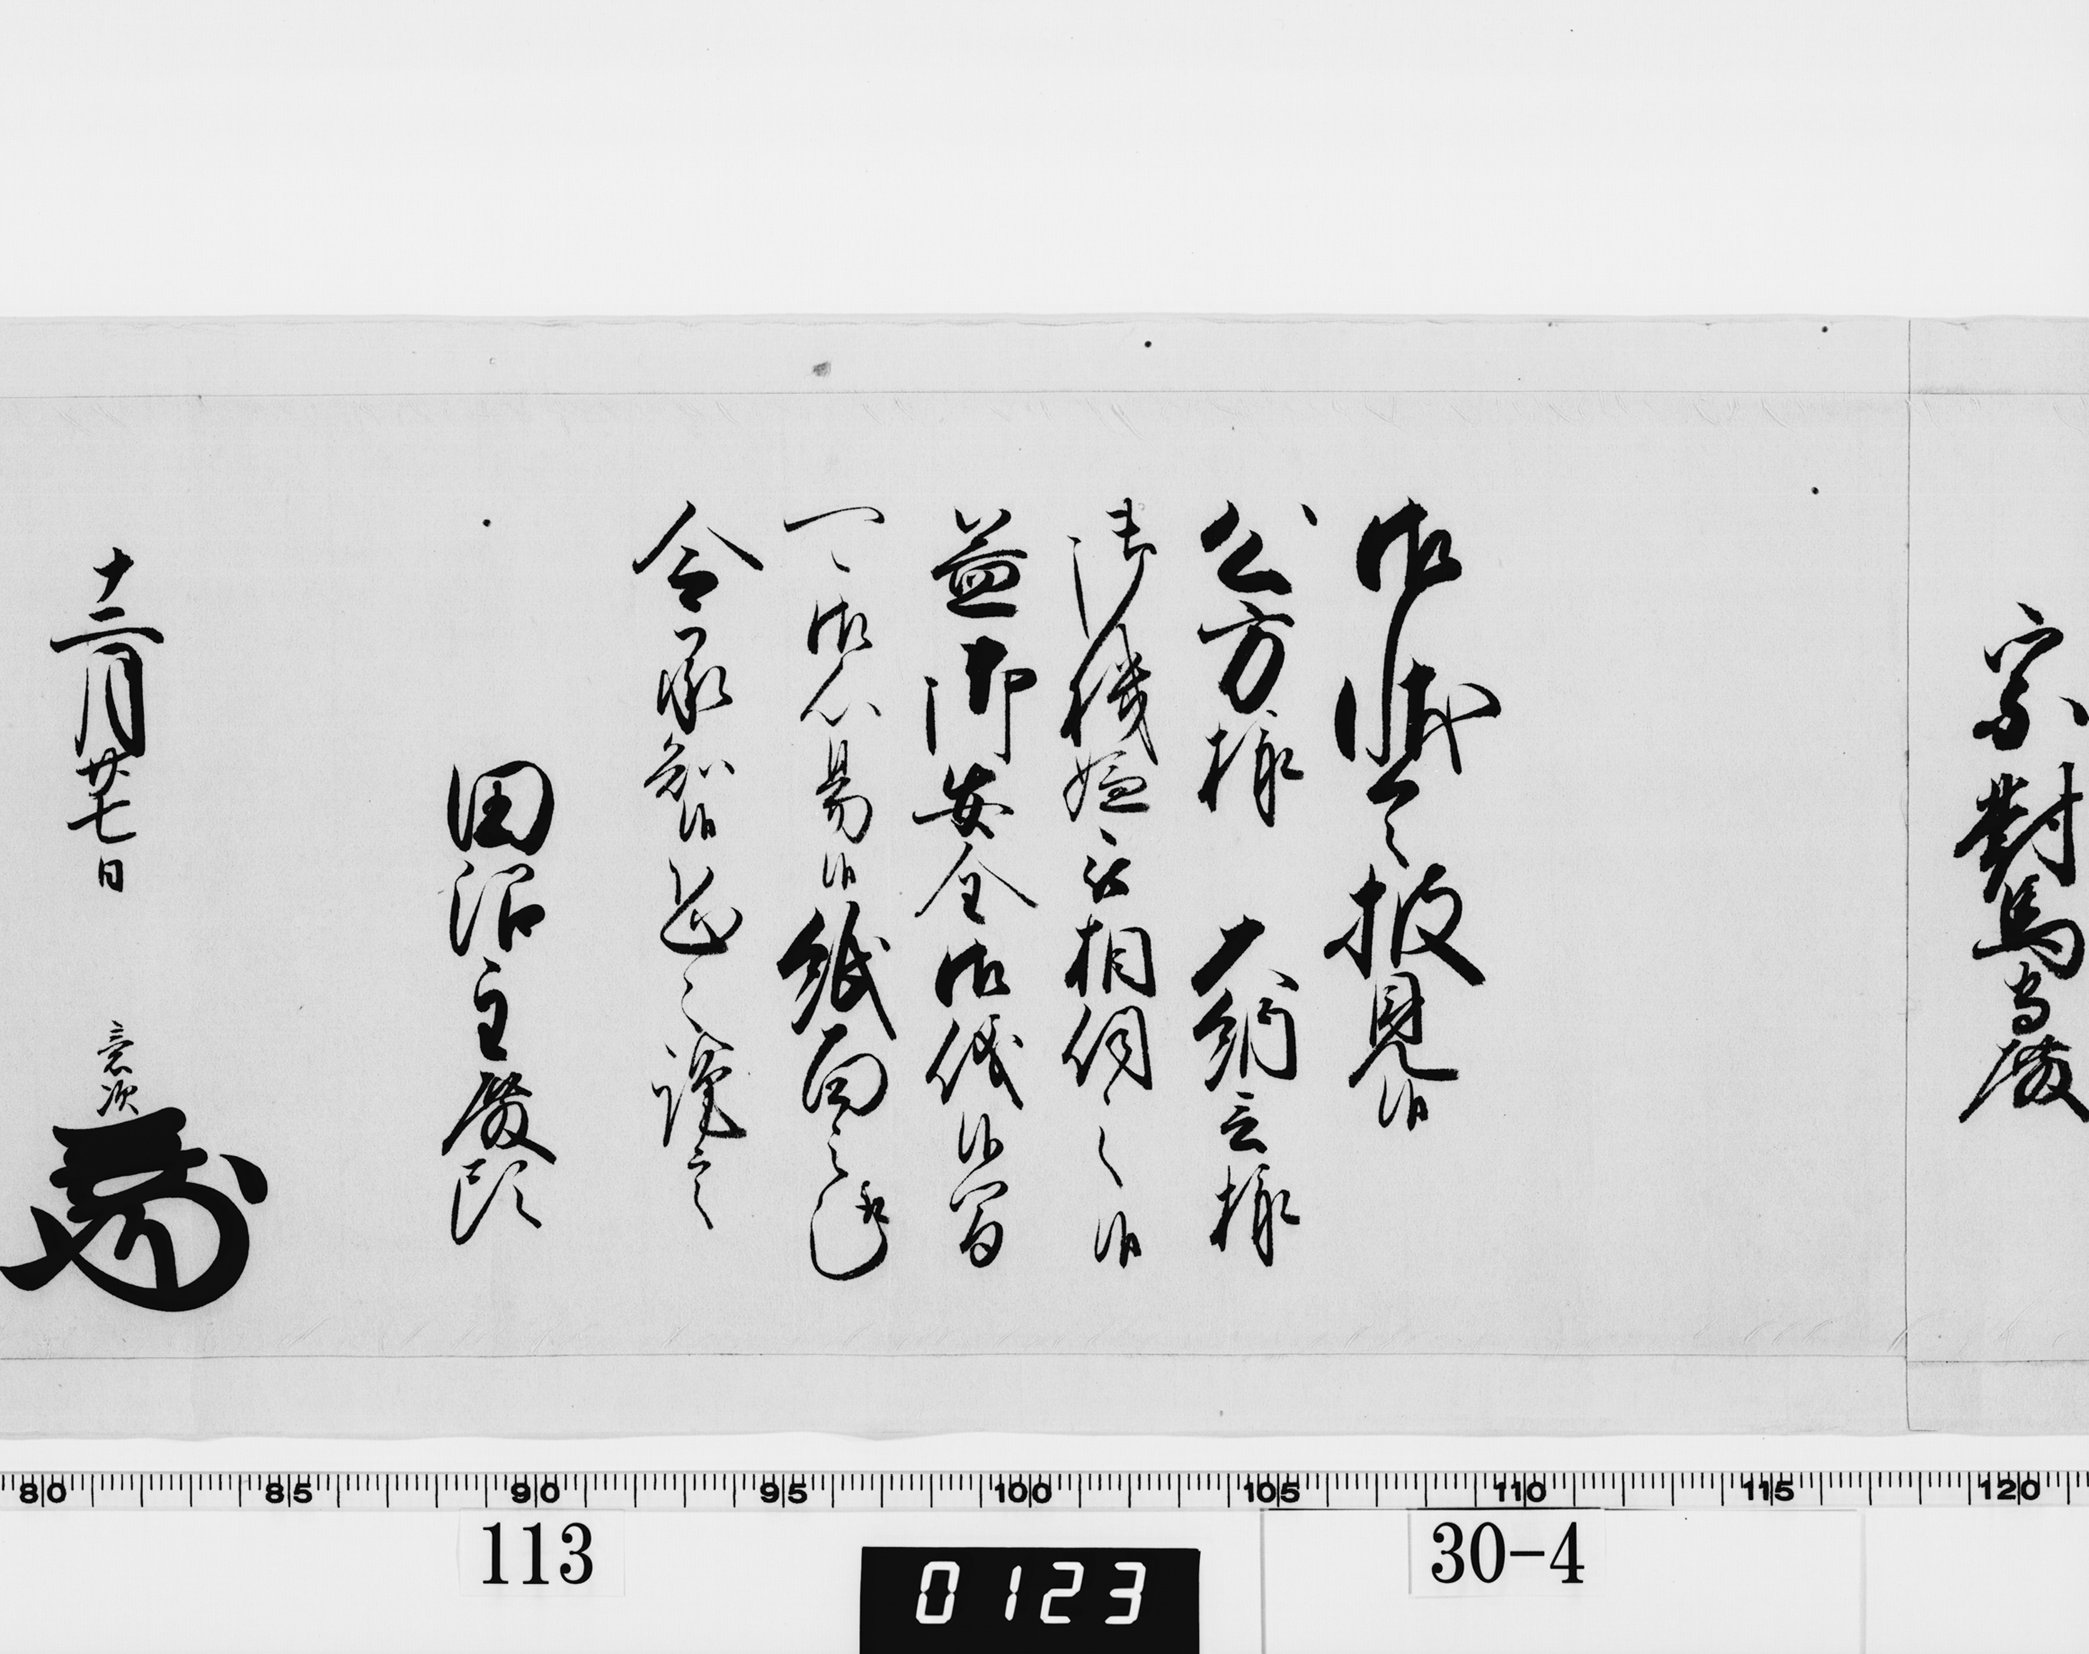 宗對馬守殿
御状令披見候
公方様 大納言様
御機嫌被相伺之候
益御安全御儀候間
可御心易候紙面之趣
令承知候恐々謹言
田沼主殿頭
十二月廿七日 意次
80 85 90 95 100 105 110 115 120
113 0123 30-4